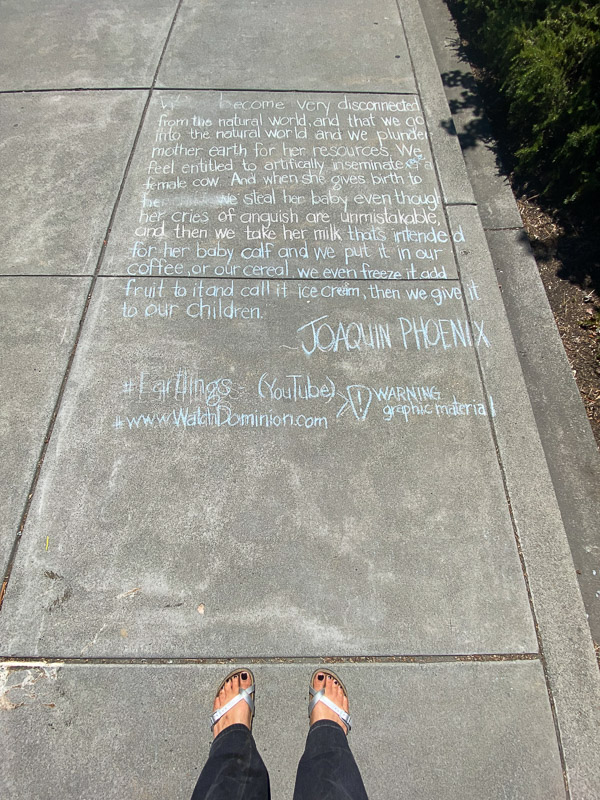 become very disconnected
from the natural world, and that we go
into the natural world and we plunder
mother earth for her resources. We
feel entitled to artifically inseminate a
female cow. And when she gives birth to
we steal her baby even though
her cries of anguish are unmistakable,
and then we take her milk that's intended
for her baby calf and we put it in our
coffee, or our cereal we even freeze it add
fruit to it and call it ice cream, then we give it
to our children.
~JOAQUIN PHOENIX
#Earthlings (YouTube)
#www.WatchDominion.com
! WARNING
graphic material